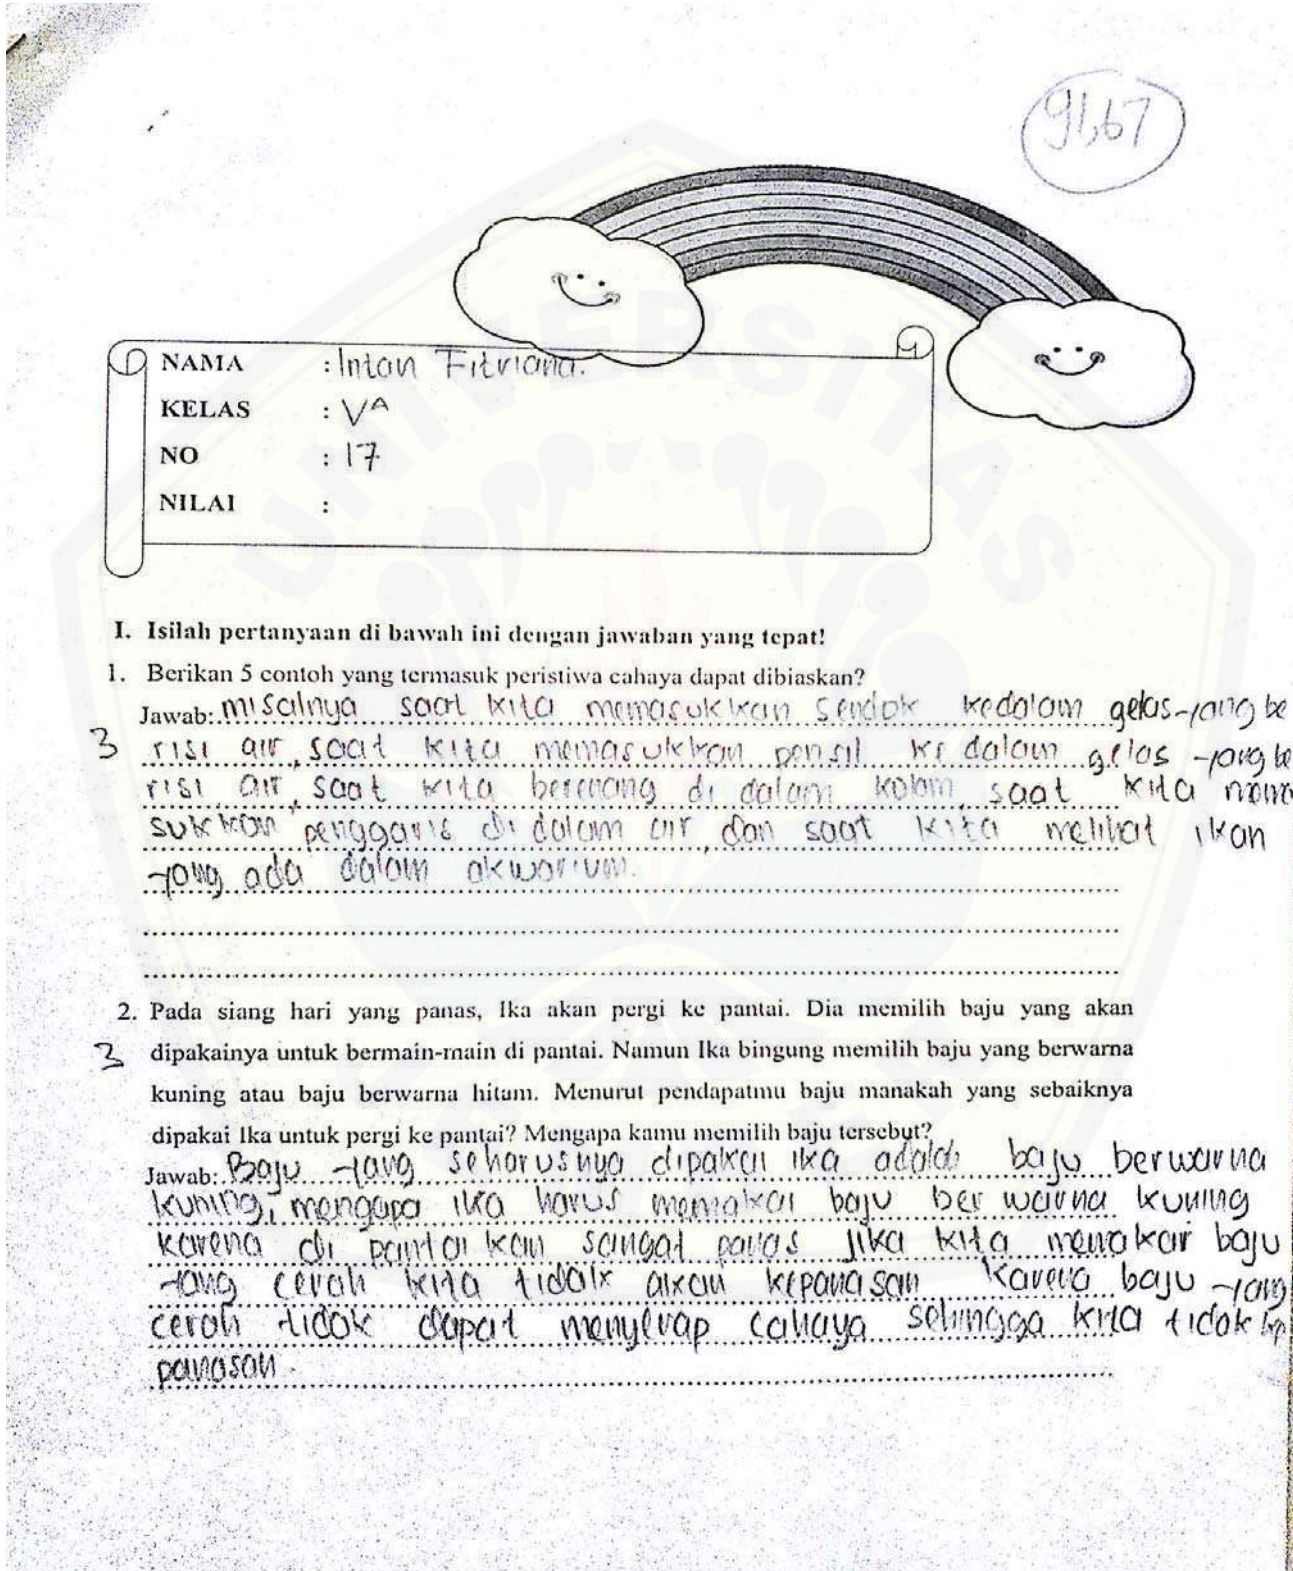 91,67
NAMA : Intan Fitriana.
KELAS : VA
NO : 17
NILAI :
UNIVERSITAS
I. Isilah pertanyaan di bawah ini dengan jawaban yang tepat!
1. Berikan 5 contoh yang termasuk peristiwa cahaya dapat dibiaskan?
Jawab: misalnya saat kita memasukkan sendok kedalam gelas yang be
3 risi air, saat kita memasukkan pensil ke dalam gelas yang be
risi air, saat kita berenang di dalam kolam, saat kita mema
sukkan penggaris di dalam air, dan saat kita melihat ikan
yang ada dalam akwarium.
2. Pada siang hari yang panas, Ika akan pergi ke pantai. Dia memilih baju yang akan
3 dipakainya untuk bermain-main di pantai. Namun Ika bingung memilih baju yang berwarna
kuning atau baju berwarna hitam. Menurut pendapatmu baju manakah yang sebaiknya
dipakai Ika untuk pergi ke pantai? Mengapa kamu memilih baju tersebut?
Jawab: Baju yang seharusnya dipakai ika adalah baju berwarna
kuning, mengapa ika harus memakai baju ber warna kuning
karena di pantai kan sangat panas jika kita memakai baju
yang cerah kita tidak akan kepanasan karena baju yang
cerah tidak dapat menyerap cahaya sehingga kita tidak ke
panasan.